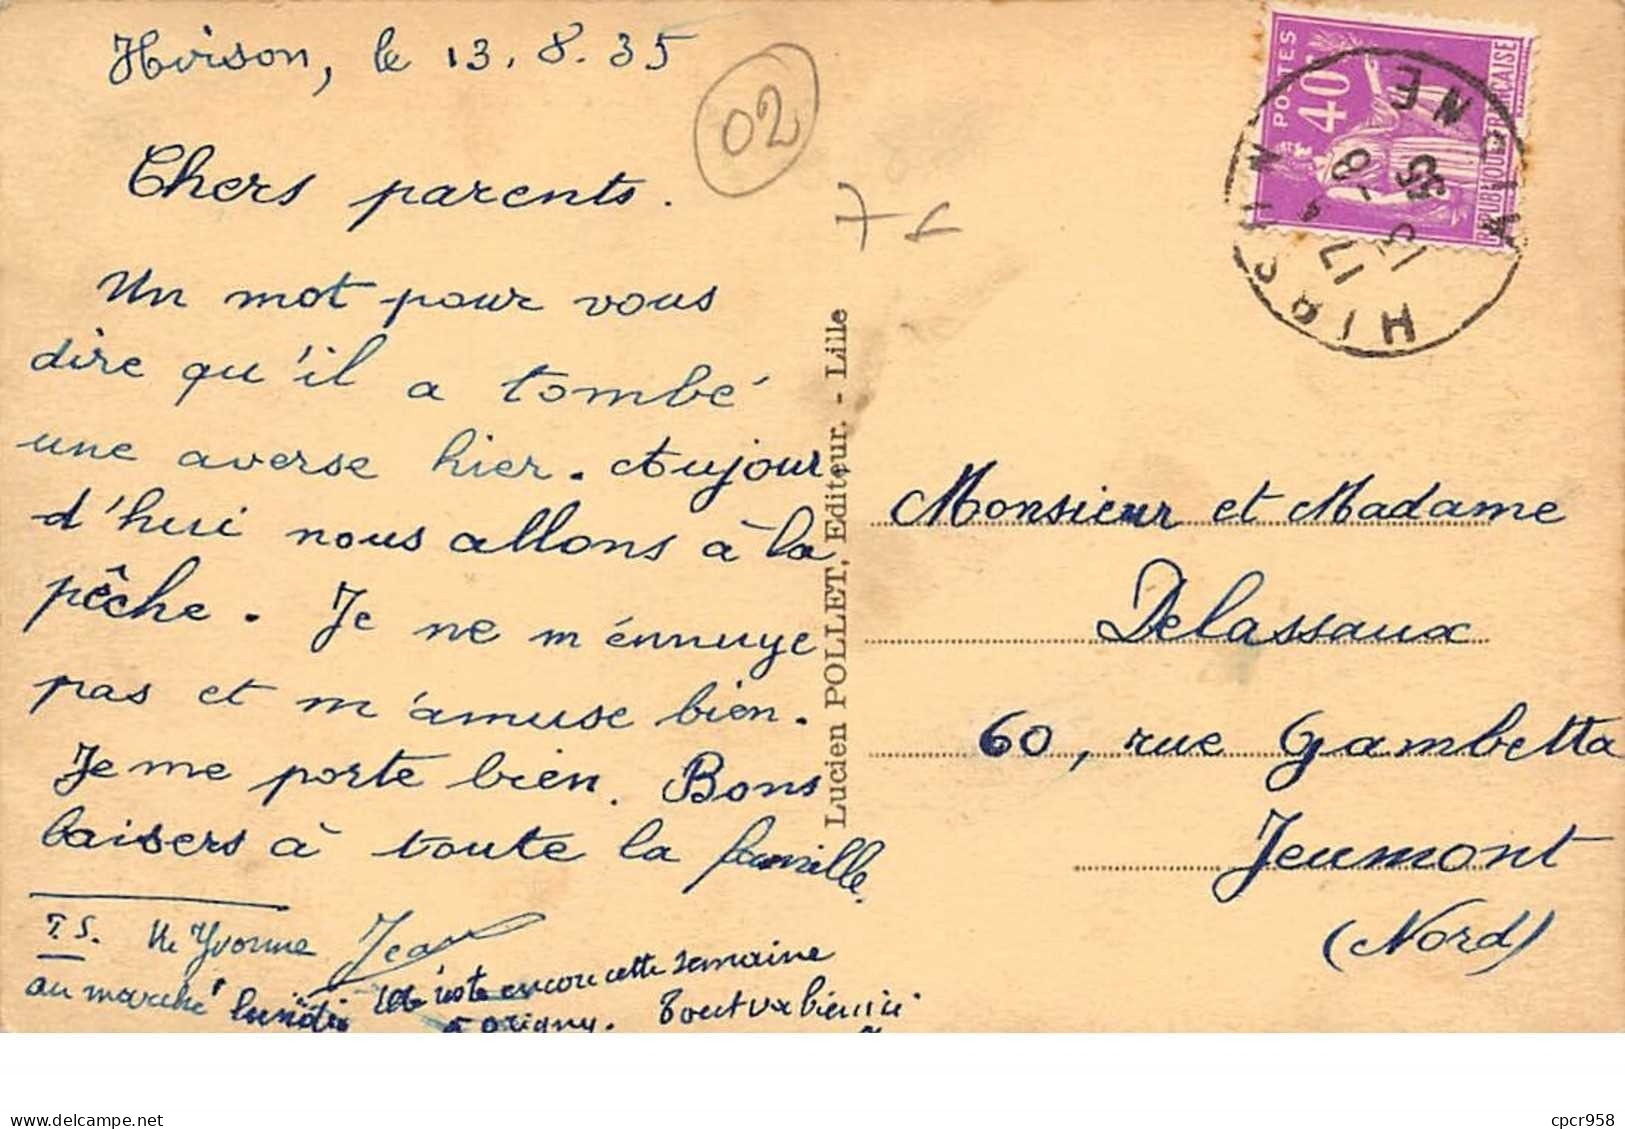 Hirson, le 13.8.35
02
Chers parents.
Un mot pour vous
dire qu'il a tombé
une averse hier. Aujour
d'hui nous allons à la
pêche. Je ne m'énnuye
pas et m'amuse bien.
Je me porte bien. Bons
baisers à toute la famille.
Jea
Yvonne
au marché lundi
reste encore cette semaine
à Origny. Tout va bien ici
Lucien POLLET, Editeur. - Lille
POSTES
40c
REPUBLIQUE FRANÇAISE
HIRSON
AISNE
17
13-8
35
Monsieur et Madame
Delassaux
60, rue Gambetta
Jeumont
(Nord)
delcampe.net
cpcr958